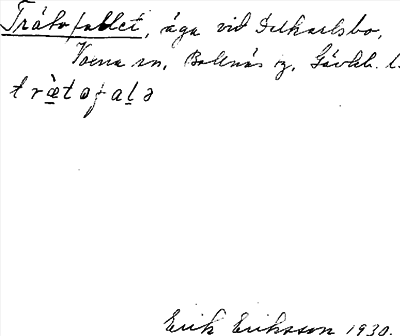 Tråtofallet, äga vid Delkarlsbo,
Voxna sn, Bollnäs tg, Gävleb. l.
trætofalə
Erik Eriksson 1930.